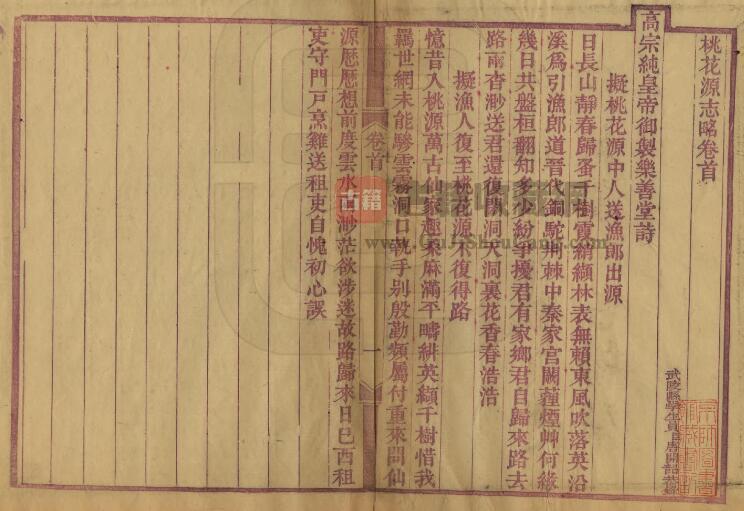 桃花源志略卷首
高宗純皇帝御製樂善堂詩
擬桃花源中人送漁郎出源
日長山靜春歸蚤千樹霞綃纈林表無賴東風吹落英沿
溪爲引漁郎道晉代銅駝荆棘中秦家宫闕蔓煙艸何緣
幾日共盤桓翻知多少紛爭擾君有家鄉君自歸來路去
路兩杳渺送君還復閉洞天洞裏花香春浩浩
擬漁人復至桃花源不復得路
憶昔入桃源萬古仙家趣桑麻滿平疇緋英纈千樹惜我
羈世網未能驂雲霧洞口執手别殷勤頻屬付重來問仙
源厯厯想前度雲水渺茫欲涉迷故路歸來日已西租
吏守門戸烹雞送租吏自愧初心誤
卷首
一
古籍